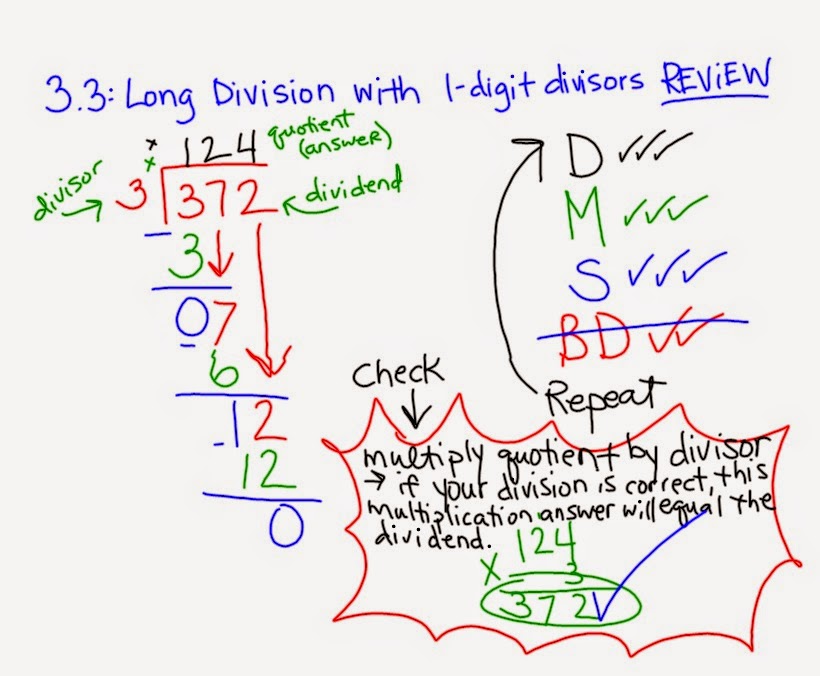 3.3: Long Division with 1-digit divisors REVIEW
x 124 quotient
(answer)
x
divisor → 3 372 ← dividend
- 3
07
- 6
12
- 12
0
D ✓✓✓
M ✓✓✓
S ✓✓✓
BD ✓✓
Repeat
Check
multiply quotient by divisor
→ if your division is correct, this
multiplication answer will equal the
dividend.
124
x 3
372 ✓